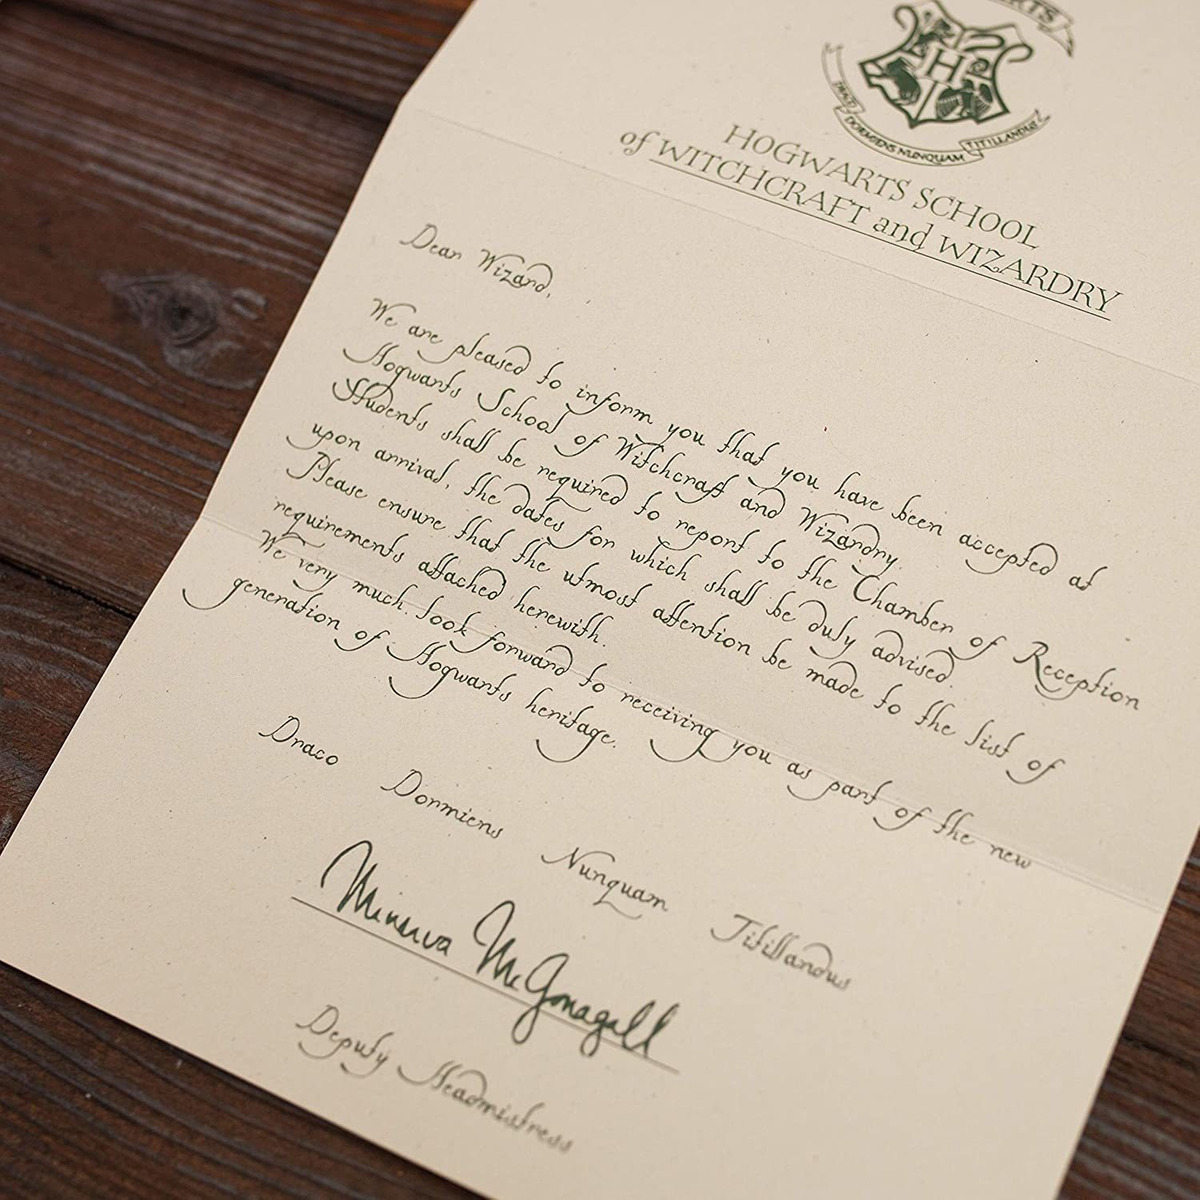 DRACO DORMIENS NUNQUAM TITILLANDUS
HOGWARTS SCHOOL
of WITCHCRAFT and WIZARDRY
Dear Wizard,
We are pleased to inform you that you have been accepted at
Hogwarts School of Witchcraft and Wizardry.
Students shall be required to report to the Chamber of Reception
upon arrival, the dates for which shall be duly advised.
Please ensure that the utmost attention be made to the list of
requirements attached herewith.
We very much look forward to receiving you as part of the new
generation of Hogwarts heritage.
Draco Dormiens Nunquam Titillandus
Minerva McGonagall
Deputy Headmistress